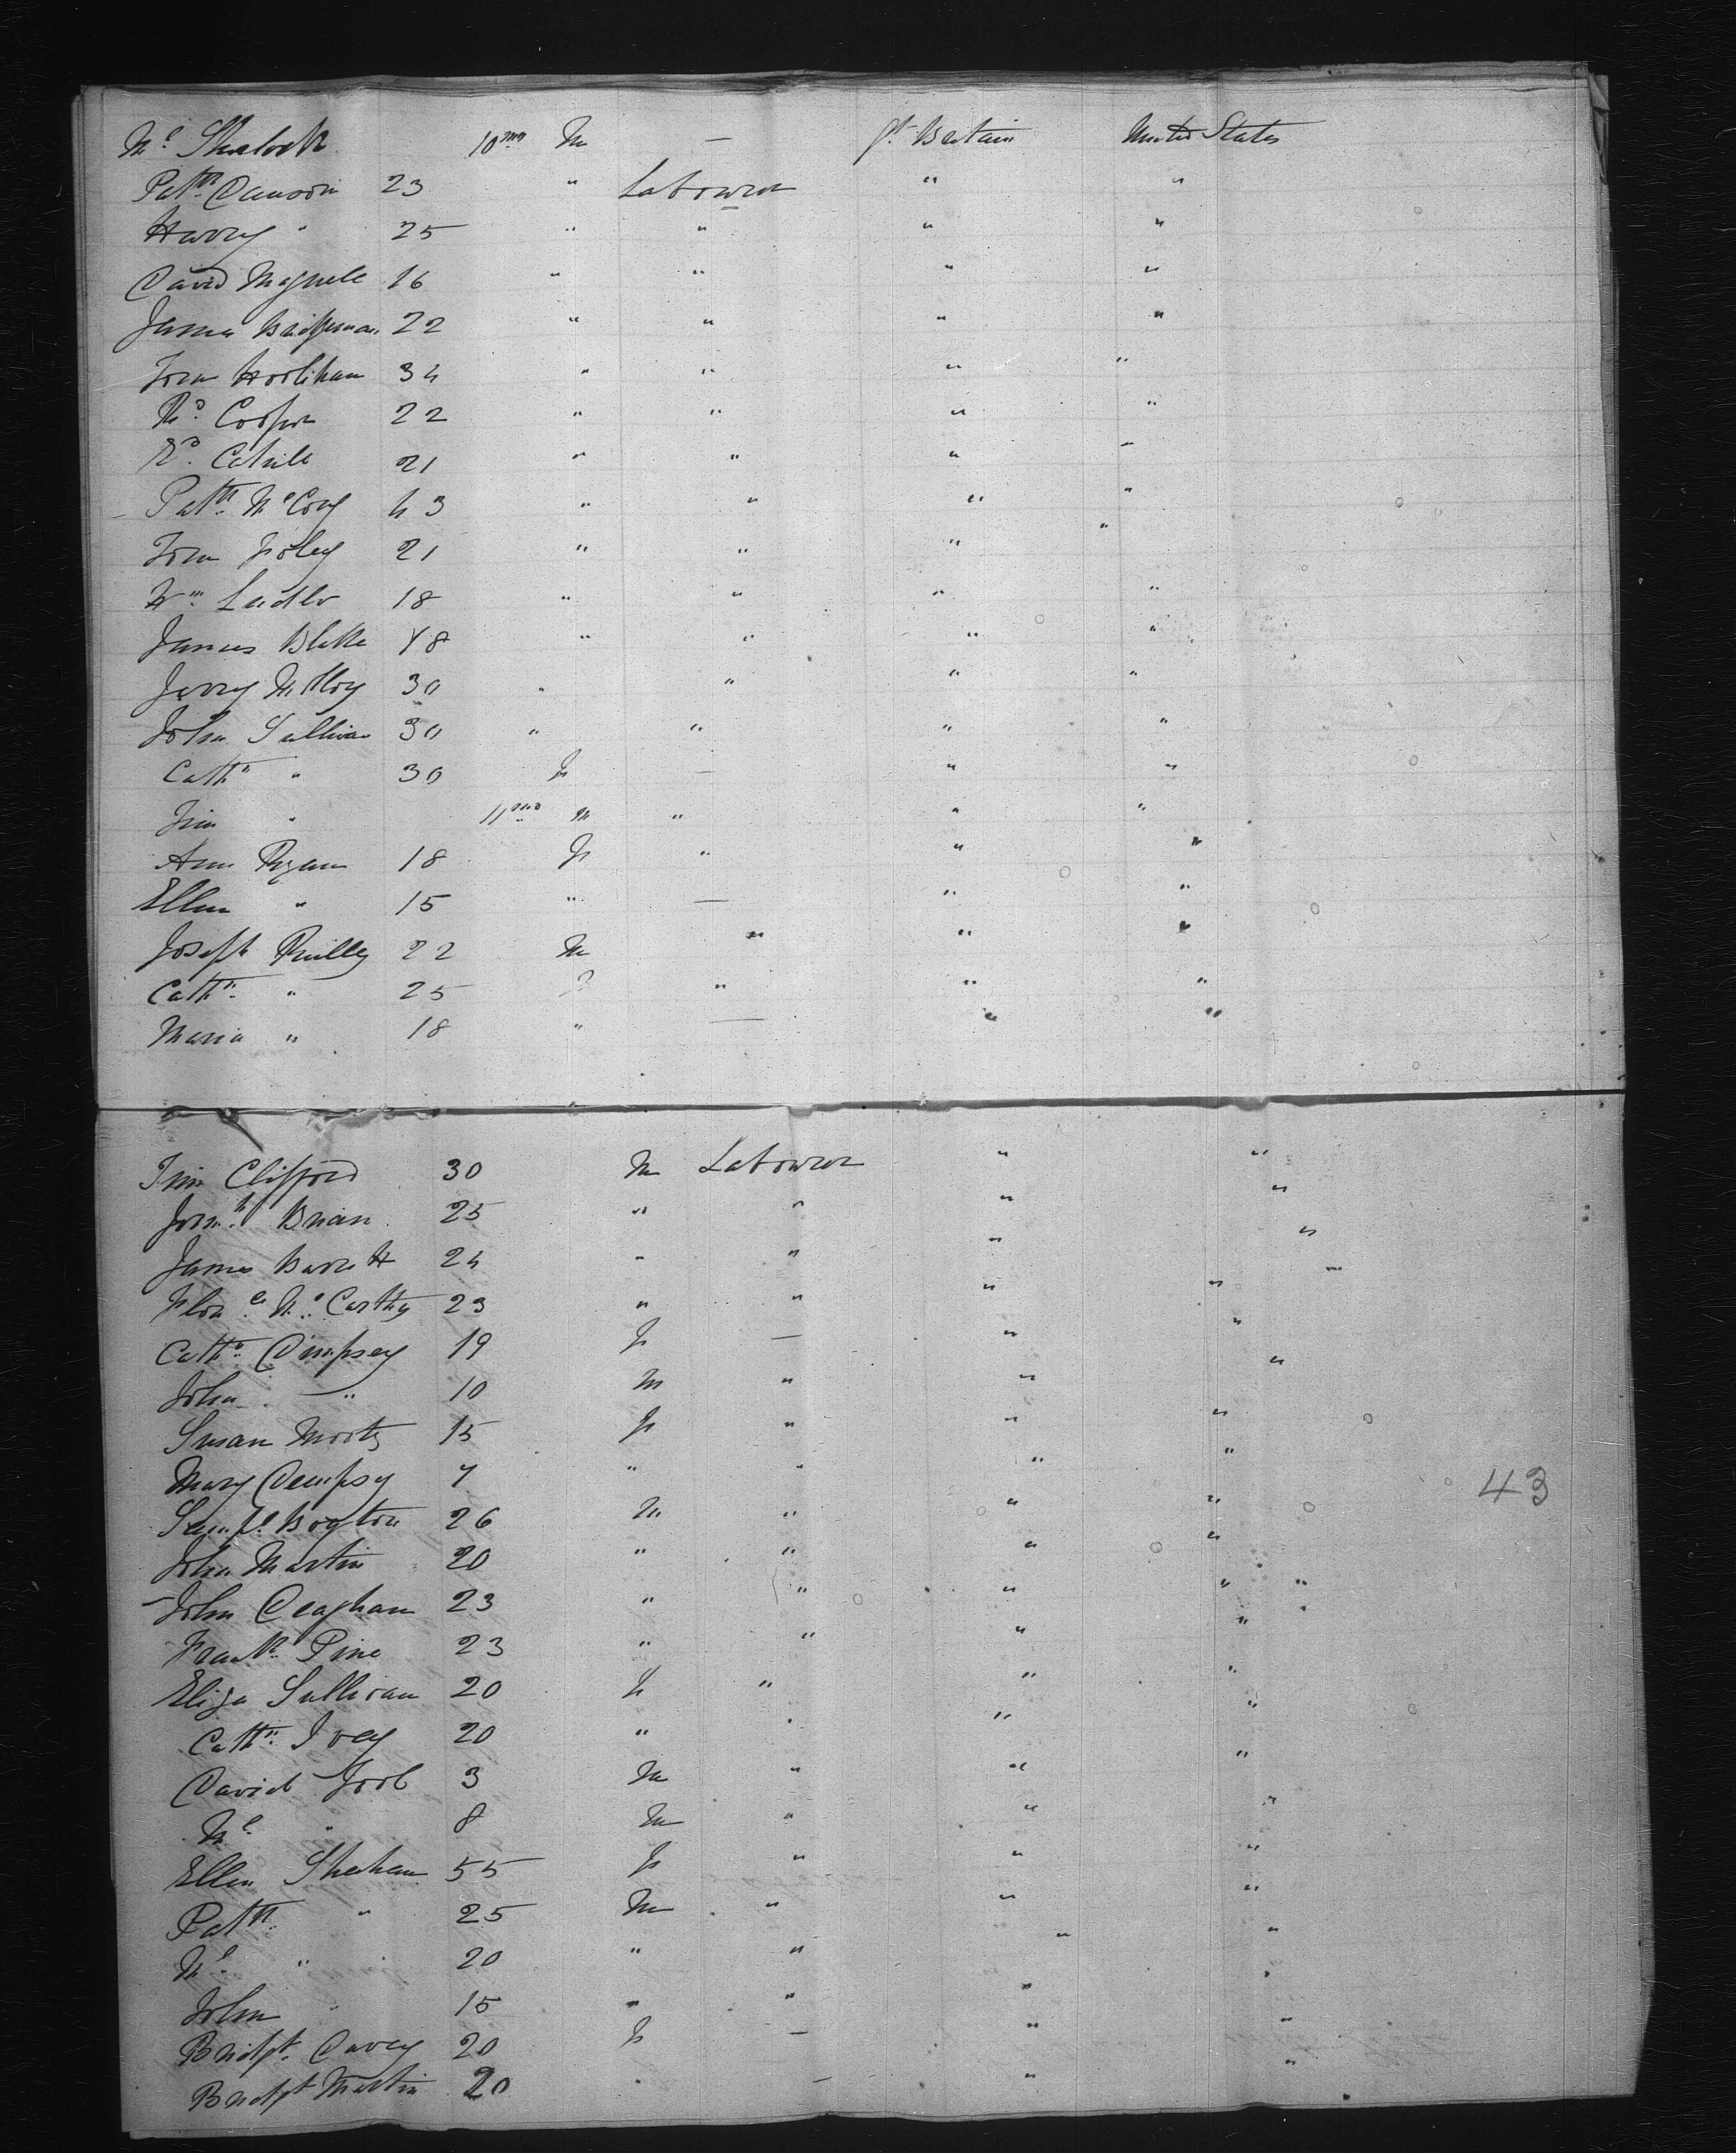 Ml. Sherlock 10 mos M — Gt. Britain United States
Patk. Dawson 23 " Labourer " "
Harry " 25 " " " "
David Magnell 16 " " " "
James Bridgeman 22 " " " "
Tom Hoolihan 34 " " " "
Rd. Cooper 22 " " " "
Ed. Cahill 21 " " " "
Patk. McCoy 43 " " " "
Tom Foley 21 " " " "
Wm. 18 " " " "
James Blake 48 " " " "
Jerry 30 " " " "
John Sullivan 30 " " " "
Cathn. " 30 F — " "
Jim " 11 mos M " " "
Ann Ryan 18 F " " "
Ellen " 15 " — " "
Joseph Reilly 22 M " " "
Cathn. " 25 F " " "
Maria " 18 " — " "
Tim Clifford 30 M Labourer " "
Brian 25 " " " "
James Barrett 24 " " " "
Flore. McCarthy 23 " " " "
Cathn. Dempsey 19 F — " "
John — " 10 M " " "
Susan 15 F " " "
Mary Dempsy 7 " " " "
Boyton 26 M " " "
John Martin 20 " " " "
John Deaghan 23 " " " "
Frank. Pine 23 " " " "
Eliza Sullivan 20 F " " "
Cathn. Ivey 20 " " " "
David 3 M " " "
Ml. " 8 M " " "
Ellen Sheehan 55 F " " "
Patk. " 25 M " " "
Ml. " 20 " " " "
John " 15 " " " "
Bridgt. Davey 20 F — " "
Bridgt Martin 20 " — " "
43